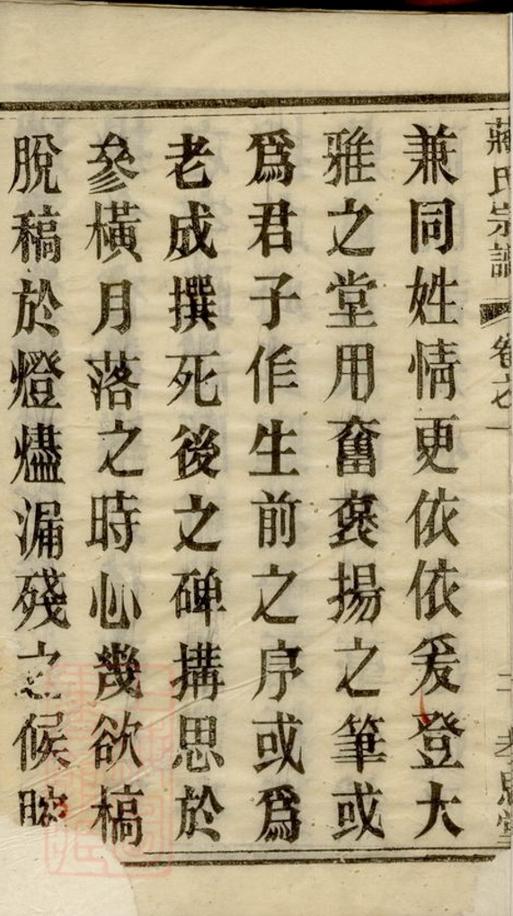 蔣氏宗譜 卷之一 二
兼同姓情更依依爰登大
雅之堂用奮褒揚之筆或
爲君子作生前之序或爲
老成撰死後之碑搆思於
參橫月落之時心幾欲槁
脫稿於燈燼漏殘之候